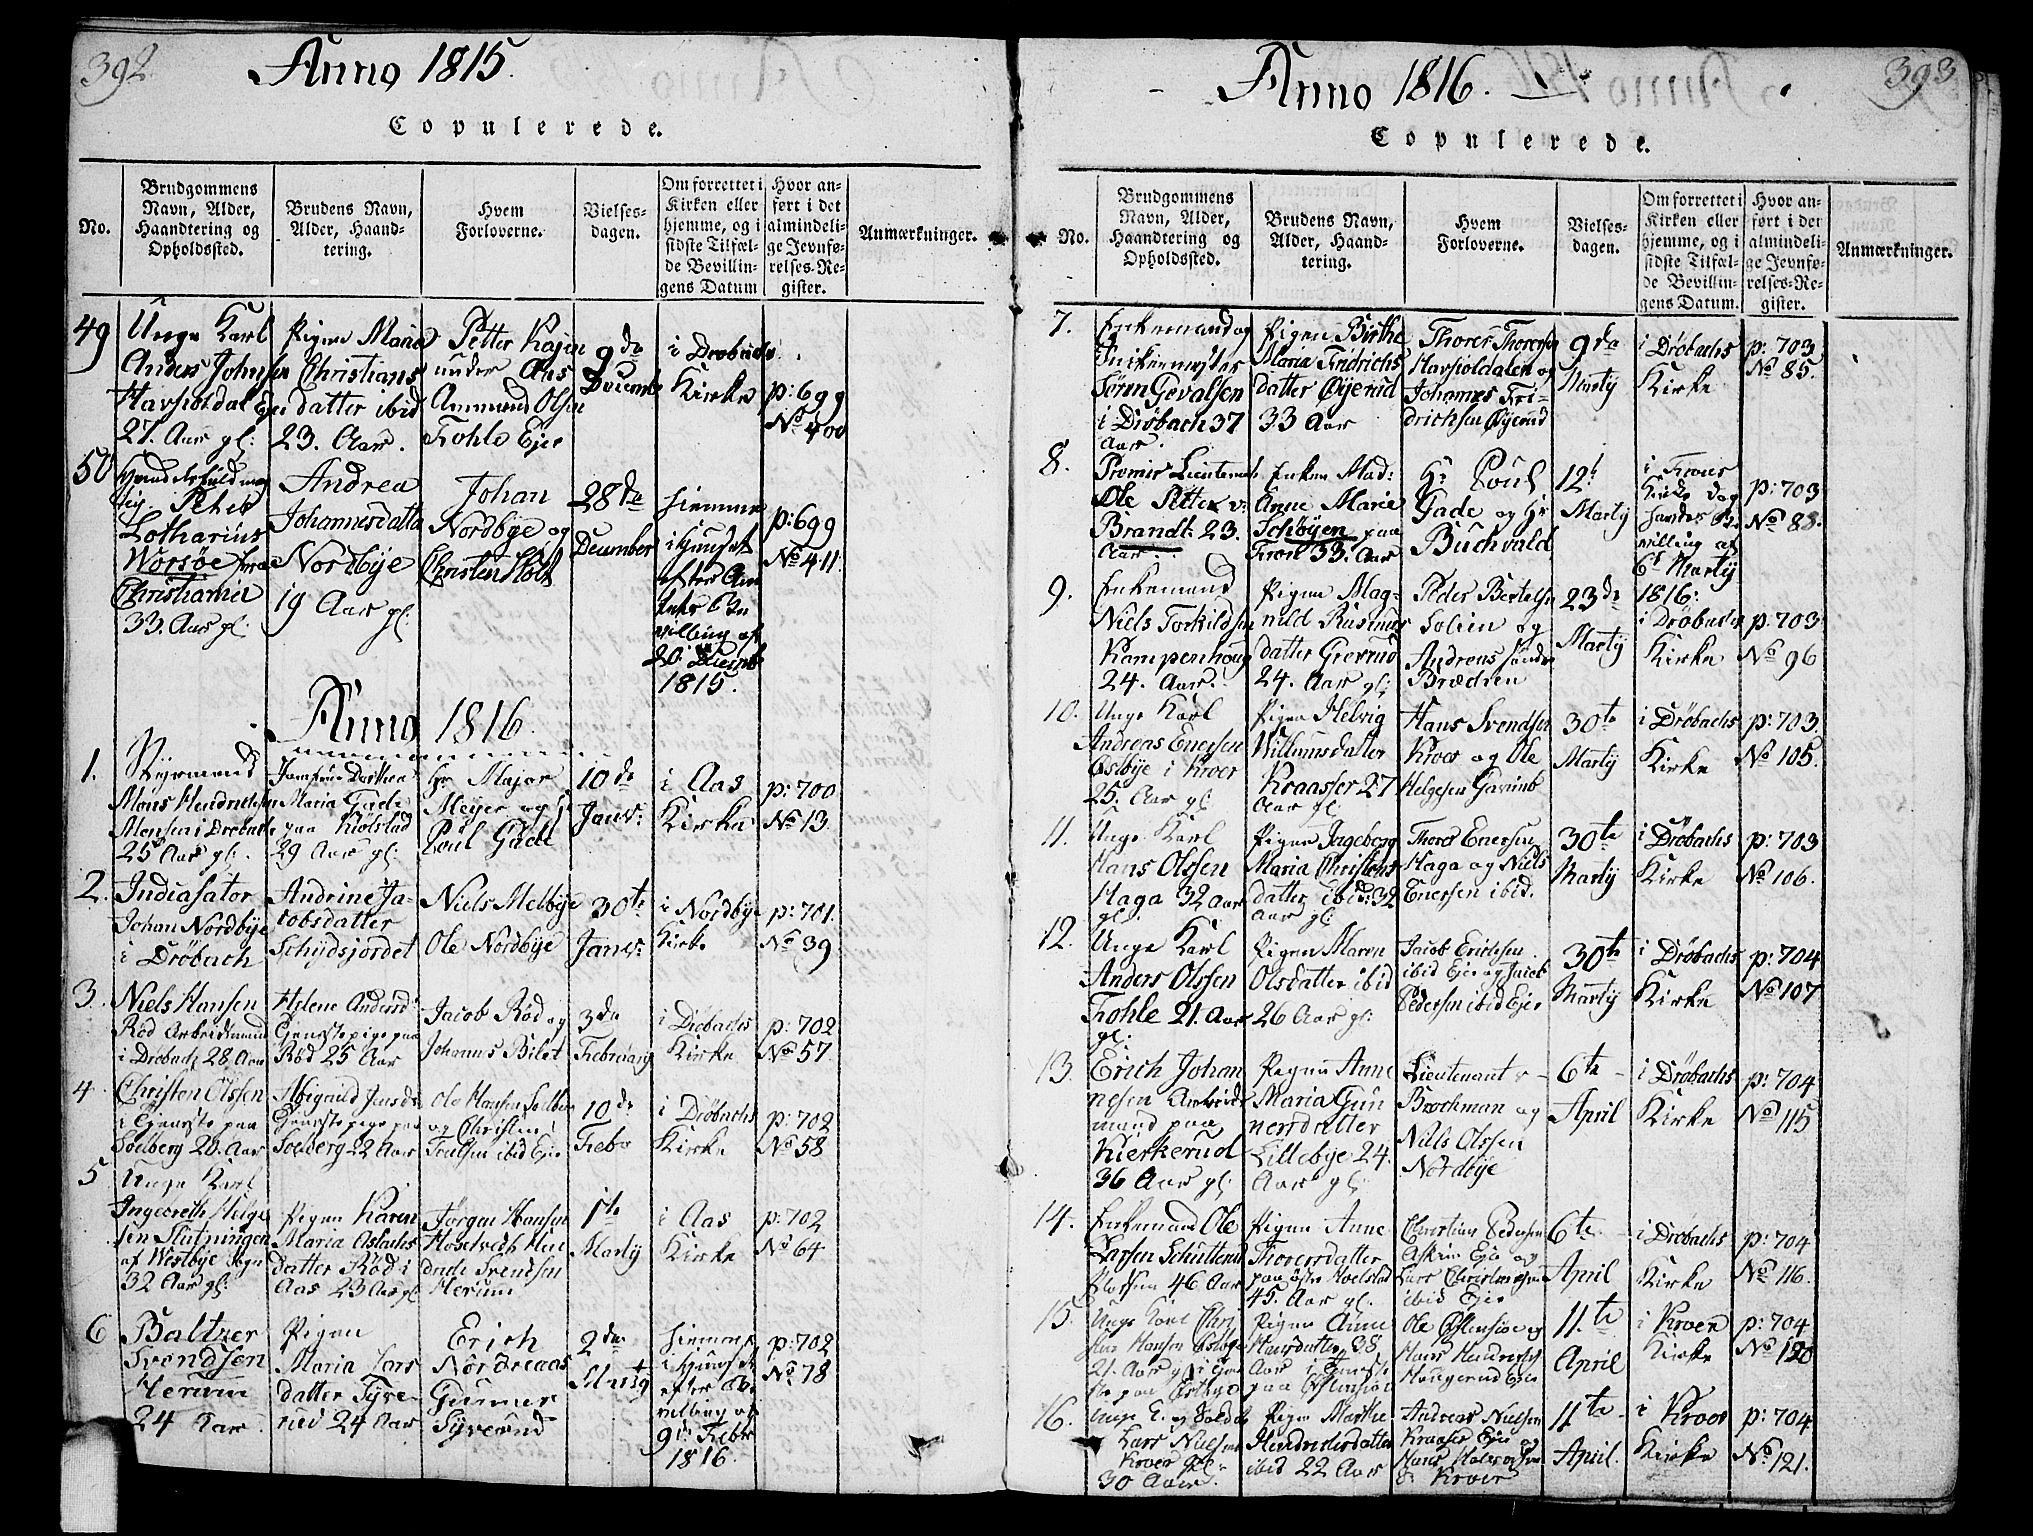 392.
Anno 1815.
Copulerede.
No.
Brudgommens Navn, Alder, Haandtering og Opholdssted.
Brudens Navn, Alder, Haandtering.
Hvem Forloverne.
Vielsesdagen.
Om forrettet i Kirken eller hjemme, og i sidste Tilfælde Bevillingens Datum
Hvor anført i det almindelige Jevnførelses-Register.
Anmærkninger.
49
Unge Karl
Anders Johnsen
Havsioldal Eje
27. Aar gl:
Pigen Maria
Christians
datter ibid
23. Aar.
Petter Kajen
under Aas
Ammund Olsen
Frohle Eje
9de
Decemb
i Drøbachs
Kirke
p: 699
No 400
50
Peter
Lotharius
Worsøe fra
Christiania
33. Aar gl:
Andrea
Johannesdatter
Nordbye
19 Aar gl:
Johan
Nordbye og
Christen Holt
28de
December
hiemme
i Huuset
efter
Be
villing af
20 Decemb
1815.
p: 699
No 411.
Anno 1816.
1.
Styrmand
Mons Hendrichsen
Monsen i Drøbach
25 Aar gl:
Jomfrue Dorthea
Maria Gade
paa Kiølstad
29 Aar gl:
Hr Major
Meyer og Hr
Poul Gade
10de
Janv:
i Aas
Kirke
p: 700
No 13.
2.
Johan Nordbye
i Drøbach
Andrine Ja-
cobsdatter
Schydsjordet
Niels Melbye
Ole Nordbye
30te
Janv:
i Nordbye
Kirke
p: 701.
No 39
3.
Niels Hansen
Rød Arbeidsmand
i Drøbach 28 Aar
Helene Andersd:
Tjenestepige paa
Rød 25 Aar
Jacob Rød og
Johannes Bilet
3de
Februarij
i Drøbachs
Kirke
p: 702
No 57.
4
Christen Olssen
i Tjeneste paa
Solberg 20. Aar
Abigaild Jensd:
Tjenestepige paa
Solberg 22 Aar
Ole Hansen Solberg
og Christen
ibid Eje
10de
Febr
i Drøbachs
Kirke
p: 702
No 58
5
Unge Karl
Ingebreth Helge
sen Slutningen
af Westbye Sogn
32 Aar gl:
Pigen Karen
Maria Aslachs
datter Rød i
Aas 23 Aar gl
Jørgen Hansen
Horum
1te
Martij
i Aas
Kirke
p: 702
No 64
6
Baltzer
Svendsen
Horum
24 Aar.
Pigen
Maria Lars
datter Syve-
rud 24 Aar
Erich
Nordreaas
Gunner
Syverud
2den
Martij
hiemme
i Huuset
efter Be
villing af
9de Febr
1816.
p: 702
No 78
393
Anno 1816.
Copulerede.
No.
Brudgommens Navn, Alder, Haandtering og Opholdssted.
Brudens Navn, Alder, Haandtering.
Hvem Forloverne.
Vielsesdagen.
Om forrettet i Kirken eller hjemme, og i sidste Tilfælde Bevillingens Datum.
Hvor anført i det almindelige Jevnførelses-Register.
Anmærkninger.
7.
Enkemand og
Søren Gevalsen
i Drøbach 37
Aar.
Pigen Birthe
Maria Fridrichs
datter Øyerud
33 Aar
Thores Thoresen
Havsioldalen og
Johannes Fri-
drichsen Øyerud
9de
Martij
i Drøbachs
Kirke
p: 703
No 85.
8.
Premier Lieutenant
Ole Petter v:
Brandt. 23.
Aar.
Enken Mad:
Anne Marie
Schøyen paa
Kroer 33. Aar
Hr Poul
Gade og Hr
Buchvald
12te
Martij
i Kroer
Kirke
Be
villing af
6te Martij
1816.
p: 703
No 88.
9.
Enkemand
Niels Torkildsen
Kampenhoug
24. Aar.
Pigen Mag-
nild Rasmus
datter Grevrud
24. Aar gl:
Peder Bertelsen
Solien og
Andreas Søndre
Bræchen
23de
Martij
i Drøbachs
Kirke
p: 703
No 96
10.
Unge Karl
Andreas Enersen
Østbye i Kroer
25. Aar gl:
Pigen Helvig
Willumsdatter
Kraasser 27
Aar gl:
Hans Svendsen
Kroer og Ole
Helgesen Garum
30te
Martij
i Drøbachs
Kirke
p: 703.
No 105.
11.
Unge Karl
Hans Olssen
Haga 32 Aar
gl.
Pigen Ingeborg
Maria Christens
datter ibid: 32
Aar gl:
Thores Enersen
Haga og Niels
Enersen ibid.
30te
Martij
i Drøbachs
Kirke
p: 703
No 106.
12.
Unge Karl
Anders Olssen
Frohle 21. Aar
gl:
Pigen Maren
Olsdatter ibid
26 Aar gl:
Jacob Erichsen
ibid Eje og Jacob
Pedersen ibid Eje
30te
Martij
i Drøbachs
Kirke
p: 704
No 107
13.
Erich Johan
nesen Arbeids
mand paa
Kierkerud
36 Aar gl:
Pigen Anne
Maria Gun
nersdatter
Lillebye 24.
Aar gl:
Lieutenant v
Brochman og
Niels Olssen
Nordbye
6te
April
i Drøbachs
Kirke
p: 704
No 115
14.
Enkemand Ole
Larsen
46 Aar
Pigen Anne
Thoresdatter
paa østre Holstad
45. Aar gl.
Christian Pedersen
Askim Eje og
Lars Christensen
ibid Eje
6te
April
i Drøbachs
Kirke
p: 704
No 116.
15.
Unge Karl
Hansen
21. Aar gl i Tjene
ste paa Østbye
Pigen Anne
Hansdatter 38
Aar i Tjeneste
paa Østensiøe
Ole Østensiøe og
Hans Hendrichsen
Haugerud Eje
11te
April
i Kroer
Kirke
p: 704
No 120
16.
Unge K. og Soldat
Lars Nielsen
Kroer Eje
30 Aar.
Pigen Marthe
Hendrichsdatter
ibid 22 Aar
Andreas Nielsen
Kraaser Eje og
Hans
Kroer
11te
April.
i Kroer
Kirke
p: 704
No 121.